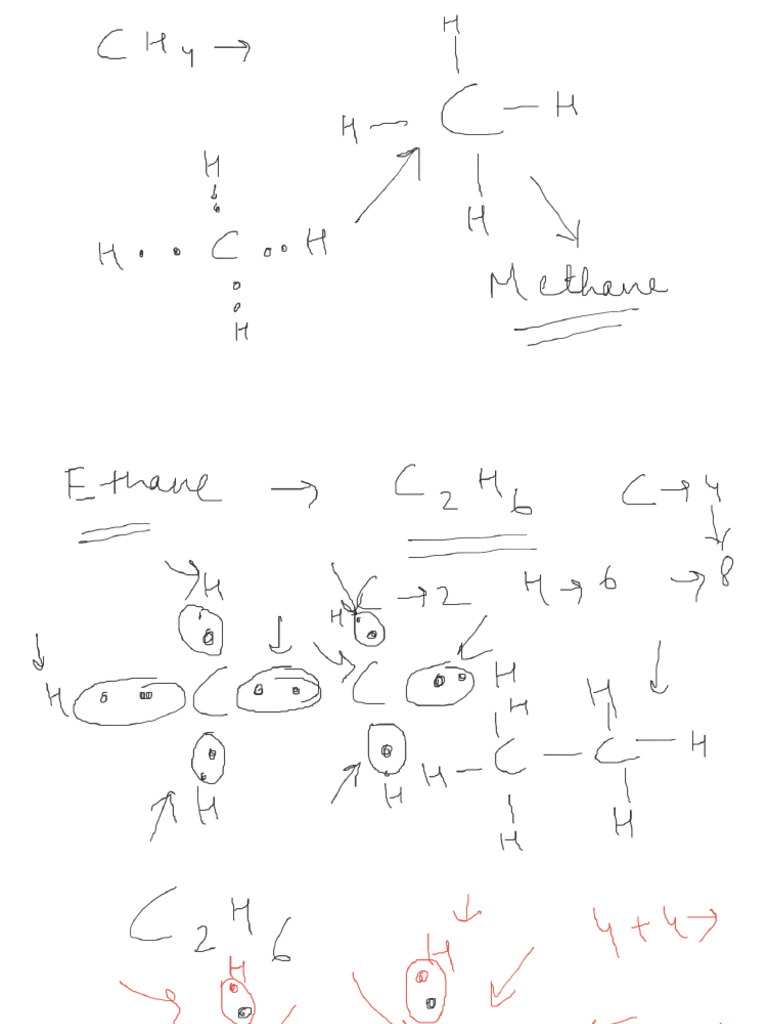 H
CH4 →
H — C — H
H
H
H · · C · · H
H
Methane
Ethane → C2H6 C → 4
8
H C → 2 H → 6 →
H
H C C H
H H
H H
H — C — C — H
H H
C2H6
4 + 4 →
H H